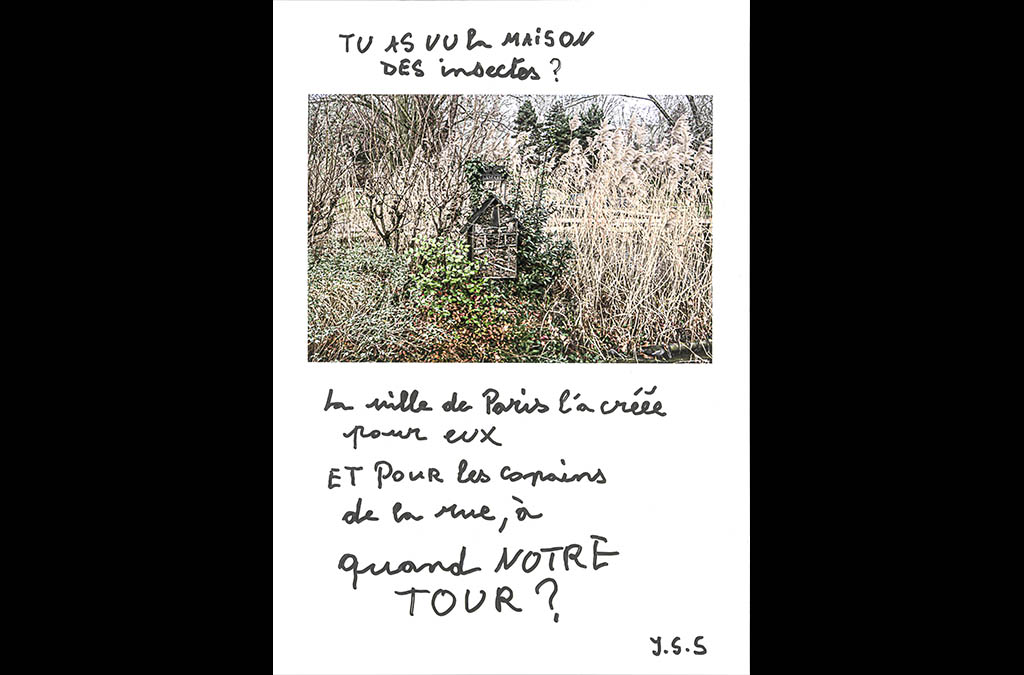 TU AS VU la MAiSON
DES insectes ?
La ville de Paris l'a créée
pour eux
ET POUR les copains
de la rue, à
quand NOTRE
TOUR ?
Y.S.S